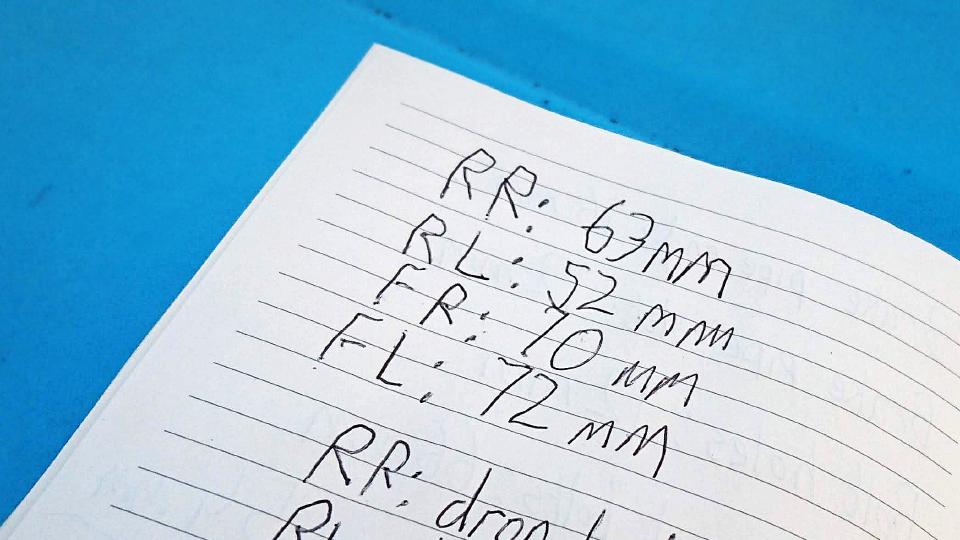 RR: 63mm
RL: 52 mm
FR: 70 mm
FL: 72 mm
RR: drop